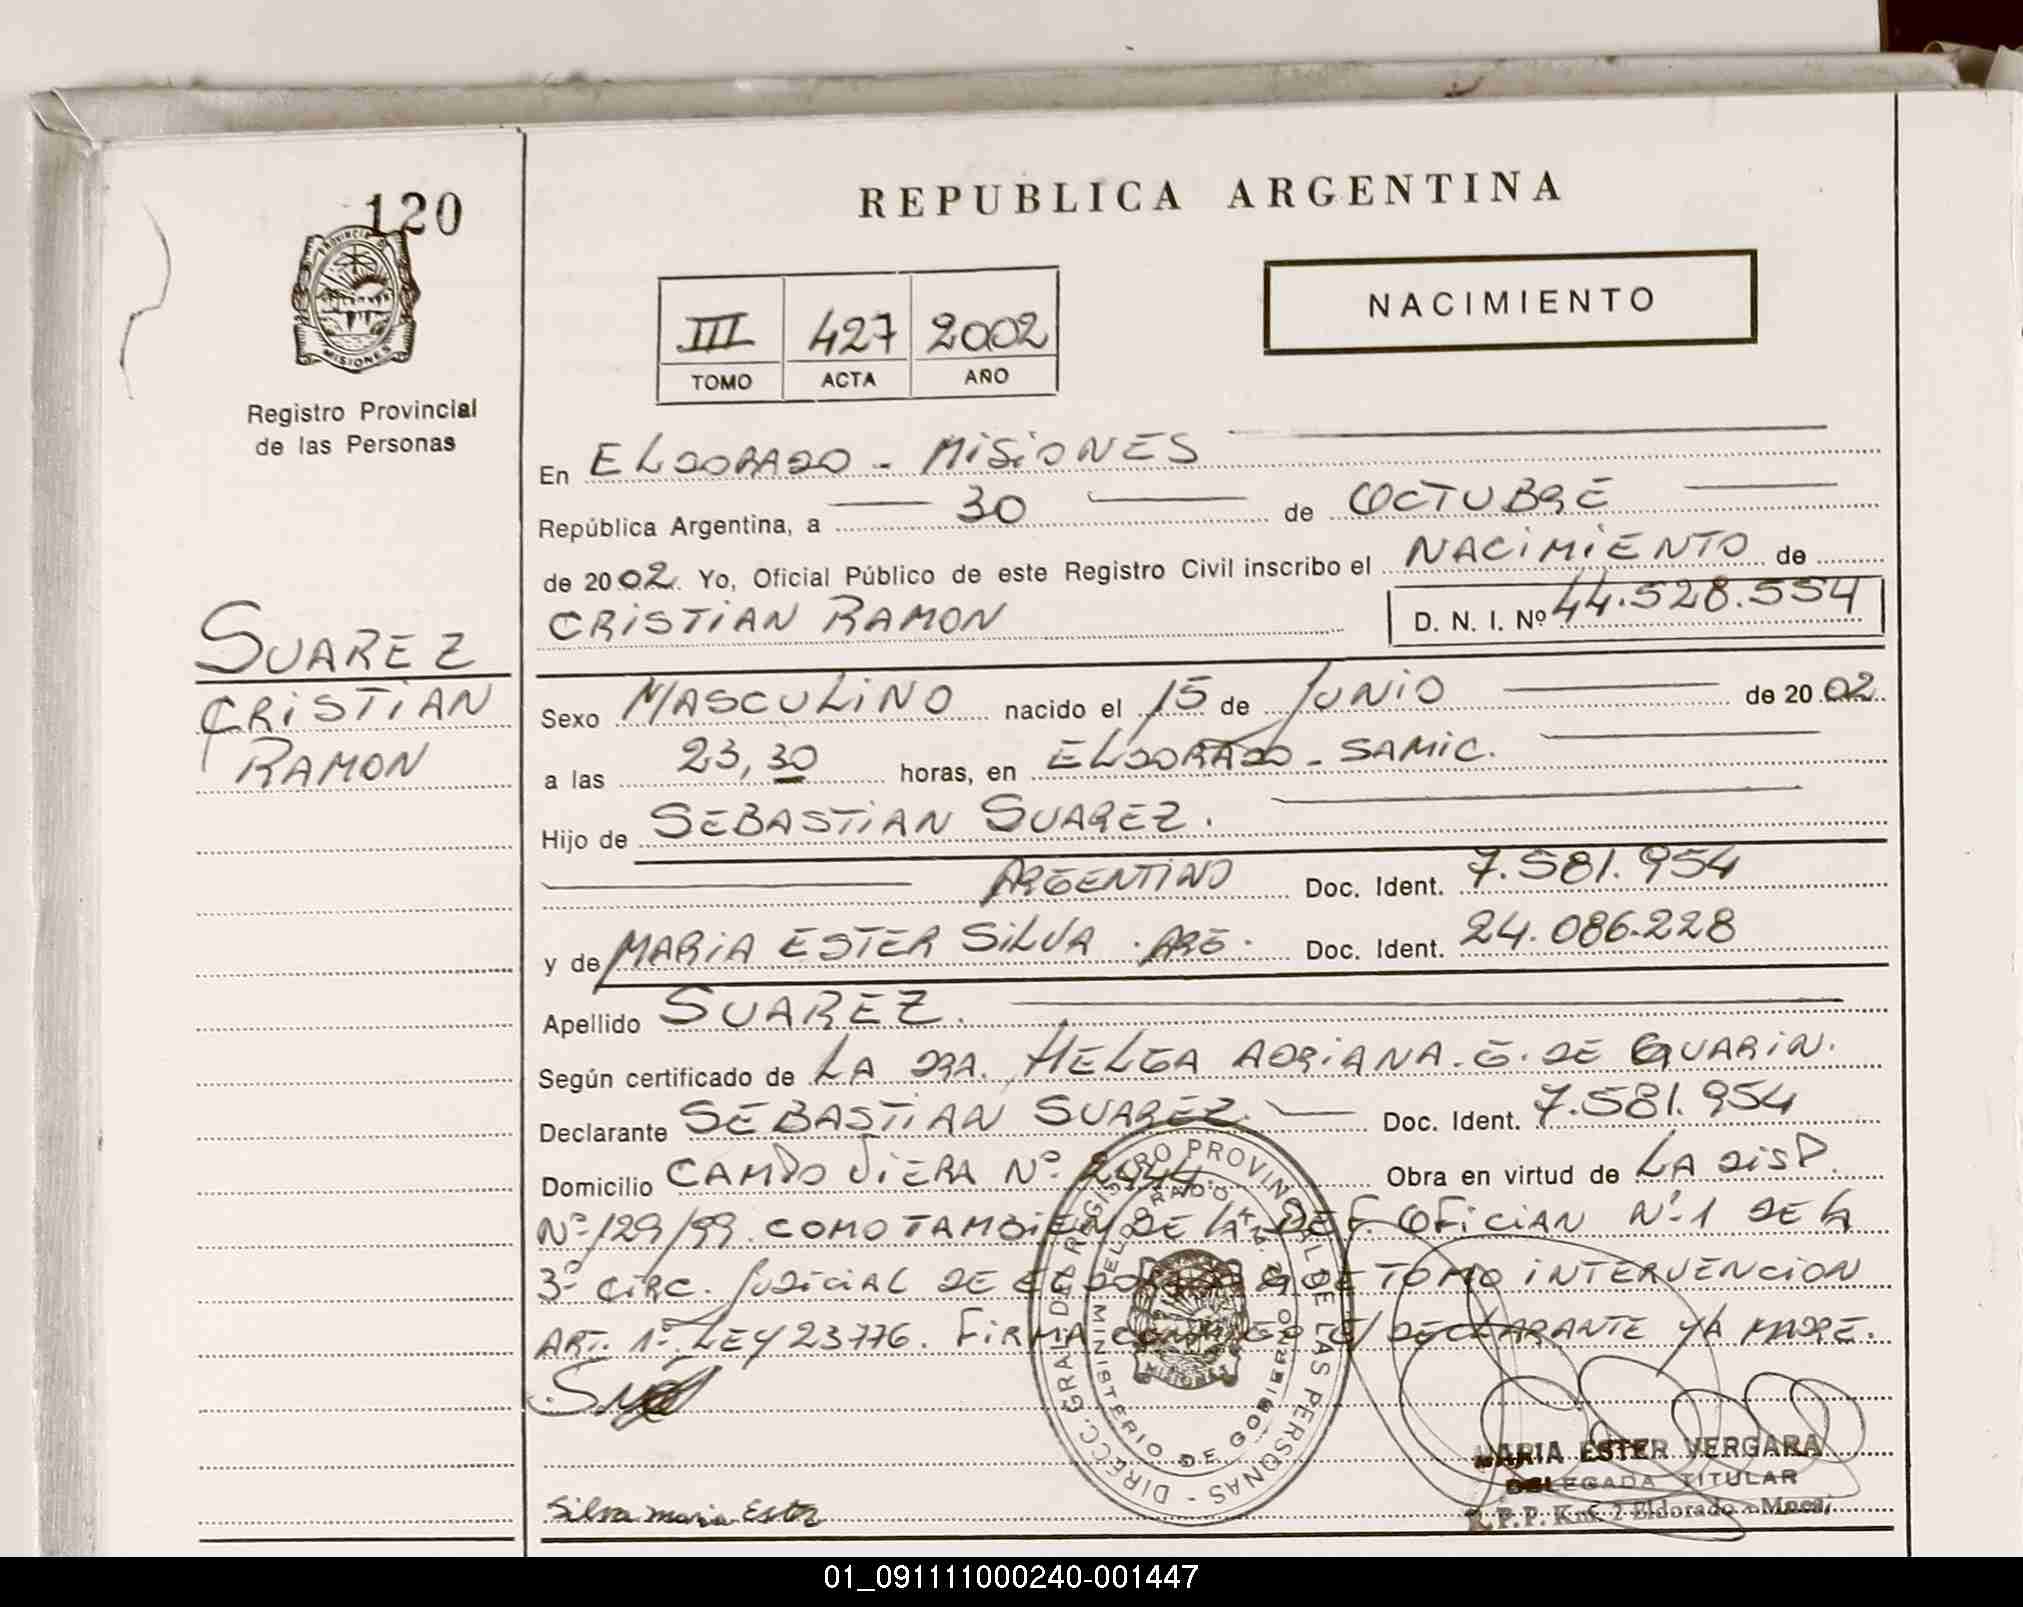 120
PROVINCIA DE
MISIONES
Registro Provincial
de las Personas
REPUBLICA ARGENTINA
NACIMIENTO
III 427 2002
TOMO ACTA AÑO
En ELDORADO - MISIONES
República Argentina, a 30 de OCTUBRE
de 2002. Yo, Oficial Público de este Registro Civil inscribo el NACIMIENTO de
CRISTIAN RAMON D. N. I. Nº 44.528.554
SUAREZ
CRISTIAN
RAMON
Sexo MASCULINO nacido el 15 de JUNIO de 2002
a las 23,30 horas, en ELDORADO - SAMIC.
Hijo de SEBASTIAN SUAREZ.
ARGENTINO Doc. Ident. 7.581.954
y de MARIA ESTER SILVA . ARG. Doc. Ident. 24.086.228
Apellido SUAREZ.
Según certificado de LA DRA. HELGA ADRIANA. G. DE GUARIN.
Declarante SEBASTIAN SUAREZ. Doc. Ident. 7.581.954
Domicilio CAMPO VIERA Nº 2444. Obra en virtud de LA DISP.
Nº 129/99. COMO TAMBIEN DE LA DEF. OFICIAN Nº 1 DE LA
3º CIRC. JUDICIAL DE ELDORADO QUE TOMO INTERVENCION
ART. 1º LEY 23776. FIRMA CONMIGO EL DECLARANTE Y LA MADRE.
DIRECC. GRAL. DEL REGISTRO PROVINCIAL DE LAS PERSONAS
MINISTERIO DE GOBIERNO
ELDORADO
MISIONES
MARIA ESTER VERGARA
DELEGADA TITULAR
R.P.P. Km. 2 Eldorado - Mnes.
Silva maria Ester
01_091111000240-001447